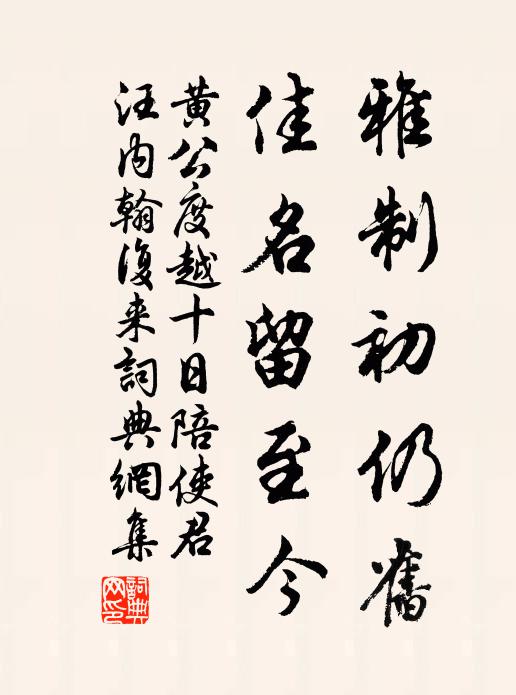 雅制初仍舊
佳名留至今
黄公度越十日陪使君
汪内翰復来詞典網集
詞典网印